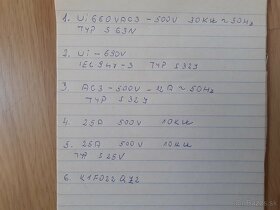 1. Ui 660V AC3 - 500V 30KW ~ 50Hz
TYP S 63N
2. Ui - 690V
IEC 947-3 TYP S32J
3. AC3 - 500V - 12A ~ 50Hz
TYP S32J
4. 25A 500V 10KW
5. 25A 500V 10KW
TYP S25V
6.
bazar.sk